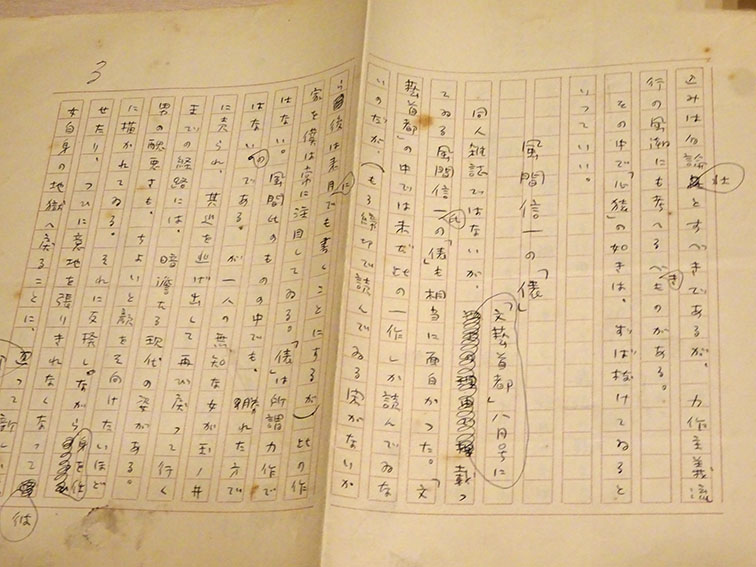 込みは勿論壮とすべきであるが、力作主義流
行の風潮にも考へるべきものがある。
その中で「心猿」の如きは、ずば抜けてゐると
いつていい。
風間信一の「俵」
同人雑誌ではないが、「文芸首都」八月号に載つ
てゐる風間信一氏の「俵」も相当に面白かつた。「文
芸首都」の中では未だ此の一作しか読んでゐな
いのだが、(もう締切で読んでゐる実がないか
ら後は来月にでも書くことにするが)此の作
家を僕は常に注目してゐる。「俵」は所謂力作で
はない。風間氏のものの中でも、勝れた方で
はないのである。が一人の無知な女が玉ノ井
に売られ、其処を逃げ出して再び戻つて行く
までの経路には、暗澹たる現代の姿がある。
男の醜悪さも、ちよいと顔をそ向けたいほど
に描かれてゐる。それに反撥しながら身を任
せたり、つひに意地を張りきれなくなつて彼
女自身の地獄へ戻ることに、
3